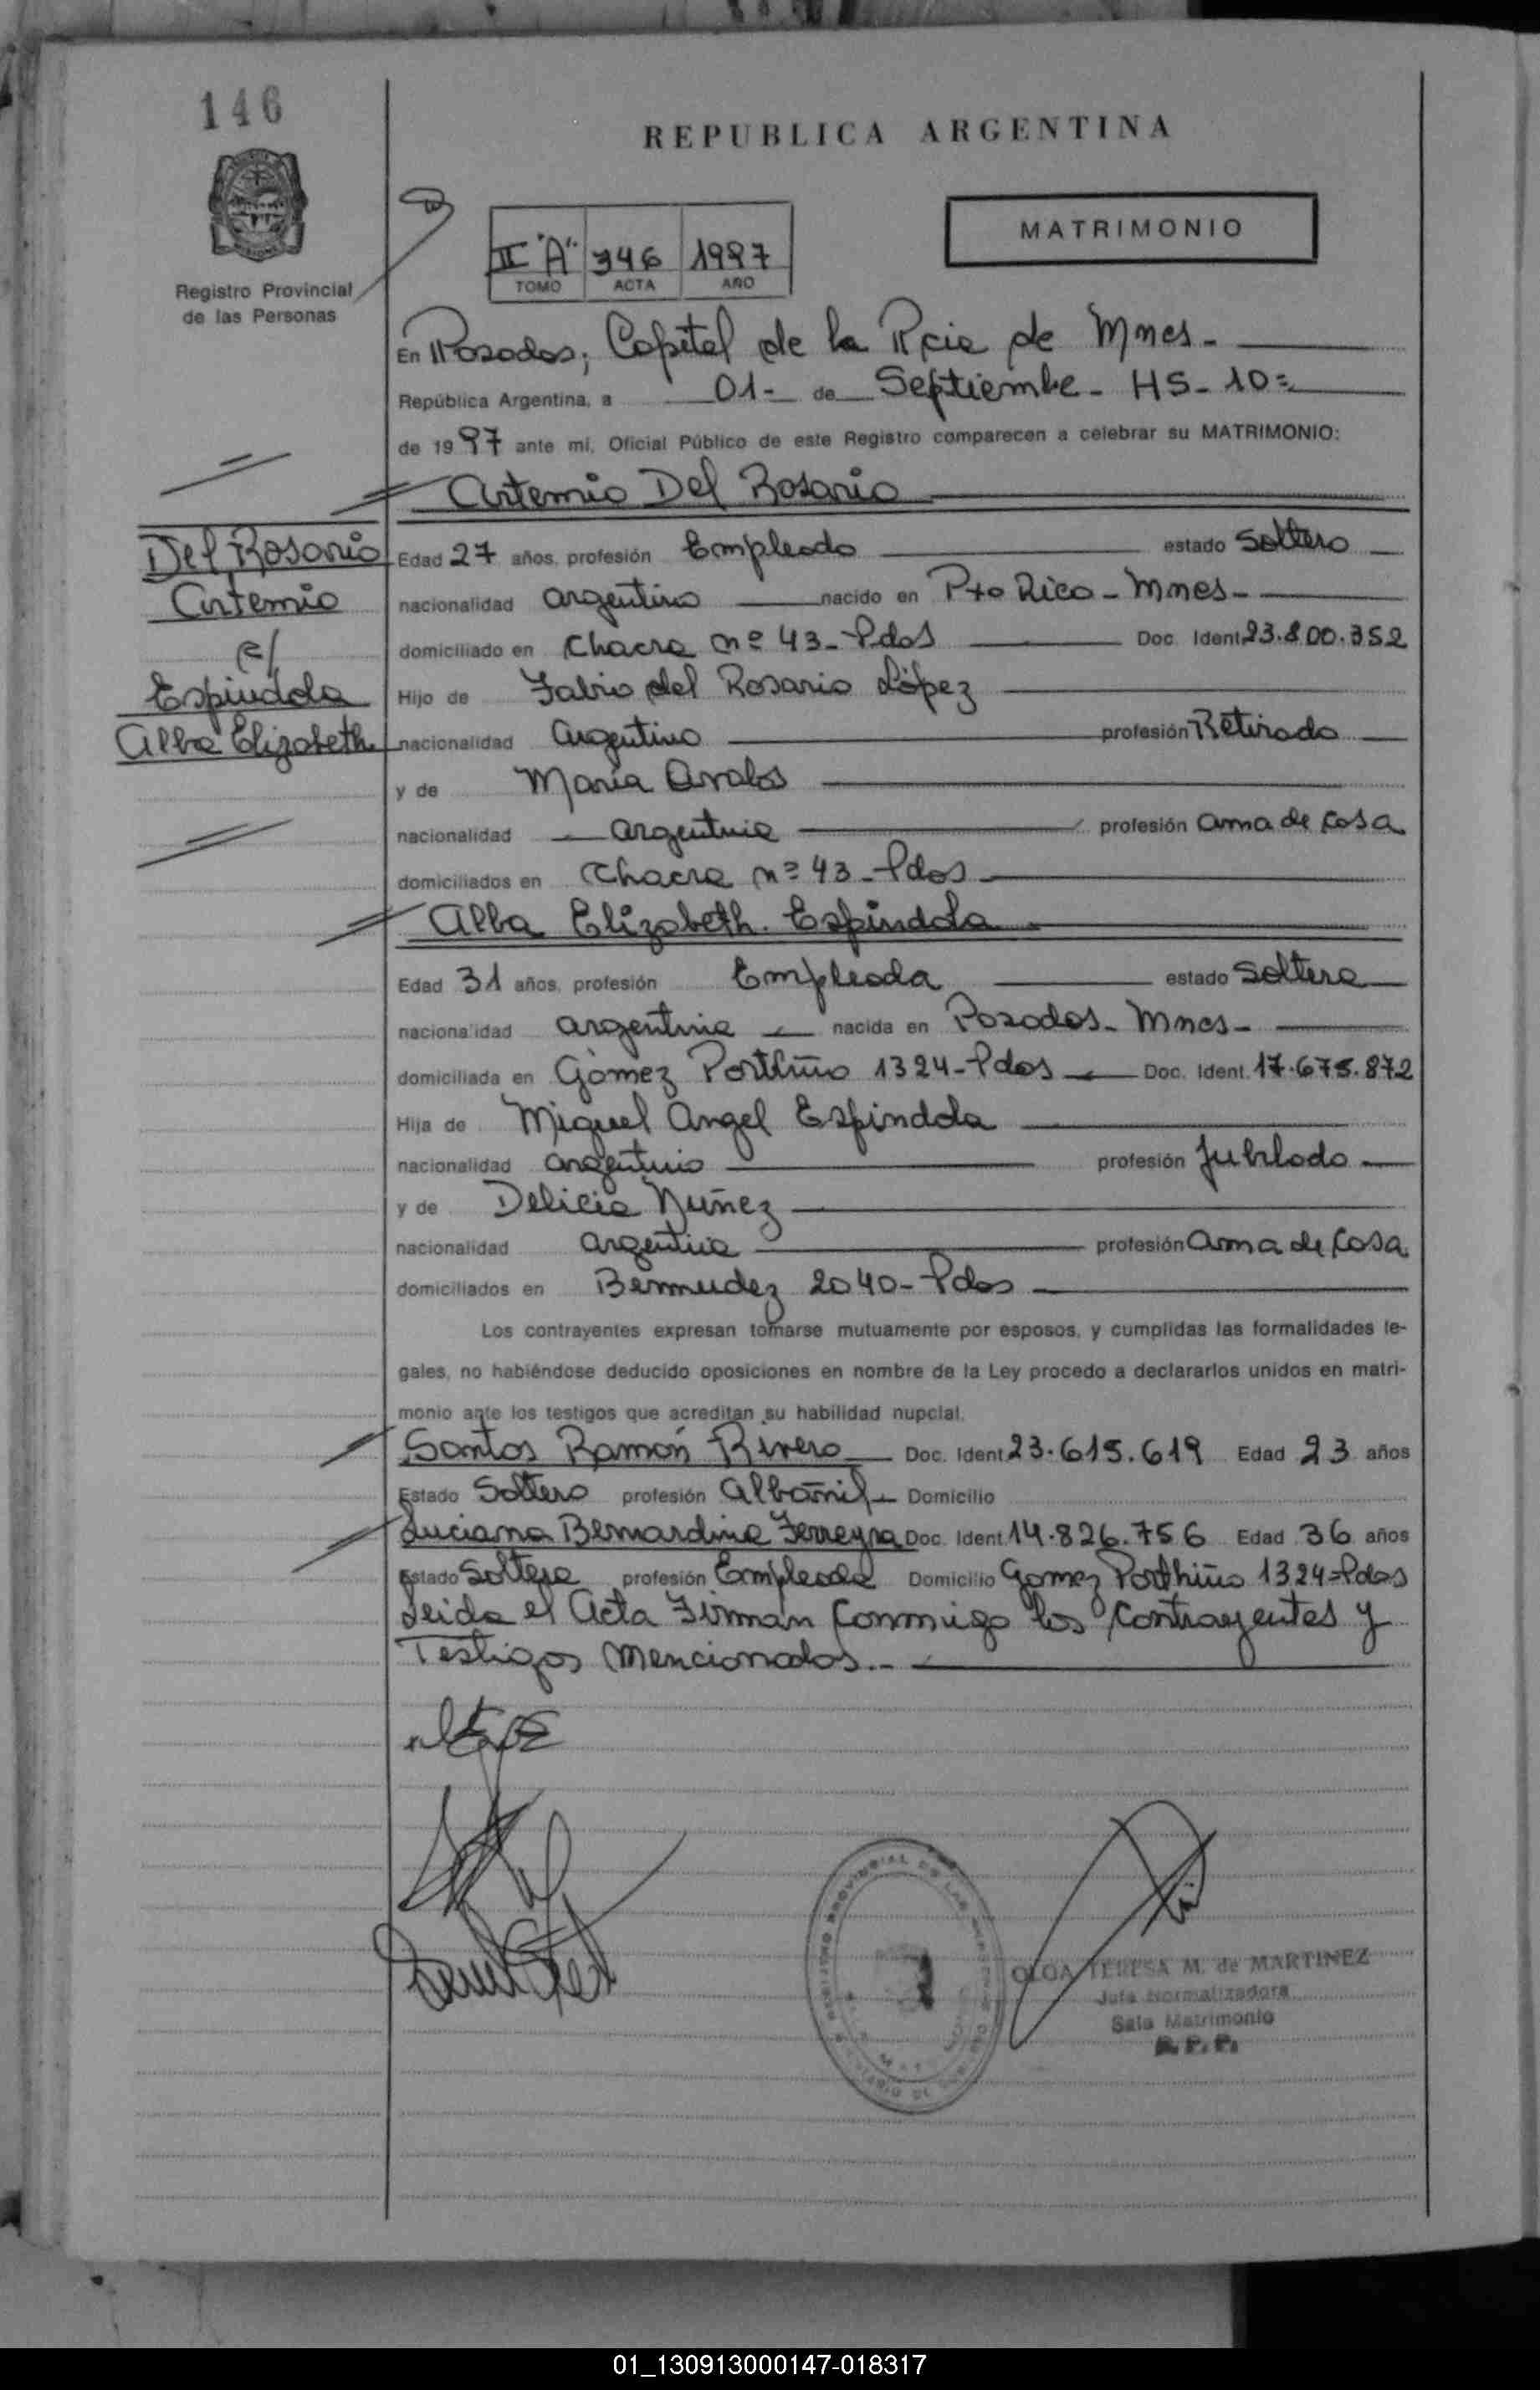 146
REPUBLICA ARGENTINA
MATRIMONIO
II "A" 346 1997
TOMO ACTA AÑO
Registro Provincial
de las Personas
En Posadas, Capital de la Pcia de Mnes.-
República Argentina, a 01- de Septiembre - HS- 10=
de 1997 ante mi, Oficial Público de este Registro comparecen a celebrar su MATRIMONIO:
Artemio Del Rosario
Del Rosario
Artemio
c/
Espindola
Alba Elizabeth
Edad 27 años, profesión Empleado estado Soltero
nacionalidad argentino nacido en Pto Rico - Mnes-
domiciliado en Chacra nº 43- Pdas Doc. Ident. 23.800.352
Hijo de Fabio del Rosario López
nacionalidad Argentino profesión Retirado
y de María Avalos
nacionalidad argentina profesión ama de casa
domiciliados en Chacra nº 43 - Pdas -
Alba Elizabeth Espindola
Edad 31 años, profesión Empleada estado Soltera
nacionalidad argentina nacida en Posadas - Mnes -
domiciliada en Gómez Porthiño 1324- Pdas Doc. Ident. 17.675.872
Hija de Miguel Angel Espindola
nacionalidad argentino profesión Jubilado
y de Delicia Nuñez
nacionalidad argentina profesión ama de casa
domiciliados en Bermudez 2040- Pdas
Los contrayentes expresan tomarse mutuamente por esposos, y cumplidas las formalidades le-
gales, no habiéndose deducido oposiciones en nombre de la Ley procedo a declararlos unidos en matri-
monio ante los testigos que acreditan su habilidad nupcial.
Santos Ramón Rivero Doc. Ident. 23.615.619 Edad 23 años
Estado Soltero profesión Albañil Domicilio
Luciana Bernardina Ferreyra Doc. Ident. 14.826.756 Edad 36 años
Estado Soltera profesión Empleada Domicilio Gomez Porthiño 1324-Pdas
Leida el Acta Firman conmigo los contrayentes y
Testigos mencionados.-
OLGA TERESA M. de MARTINEZ
Jefa Normalizadora
Sala Matrimonio
R. P. P.
01_130913000147-018317